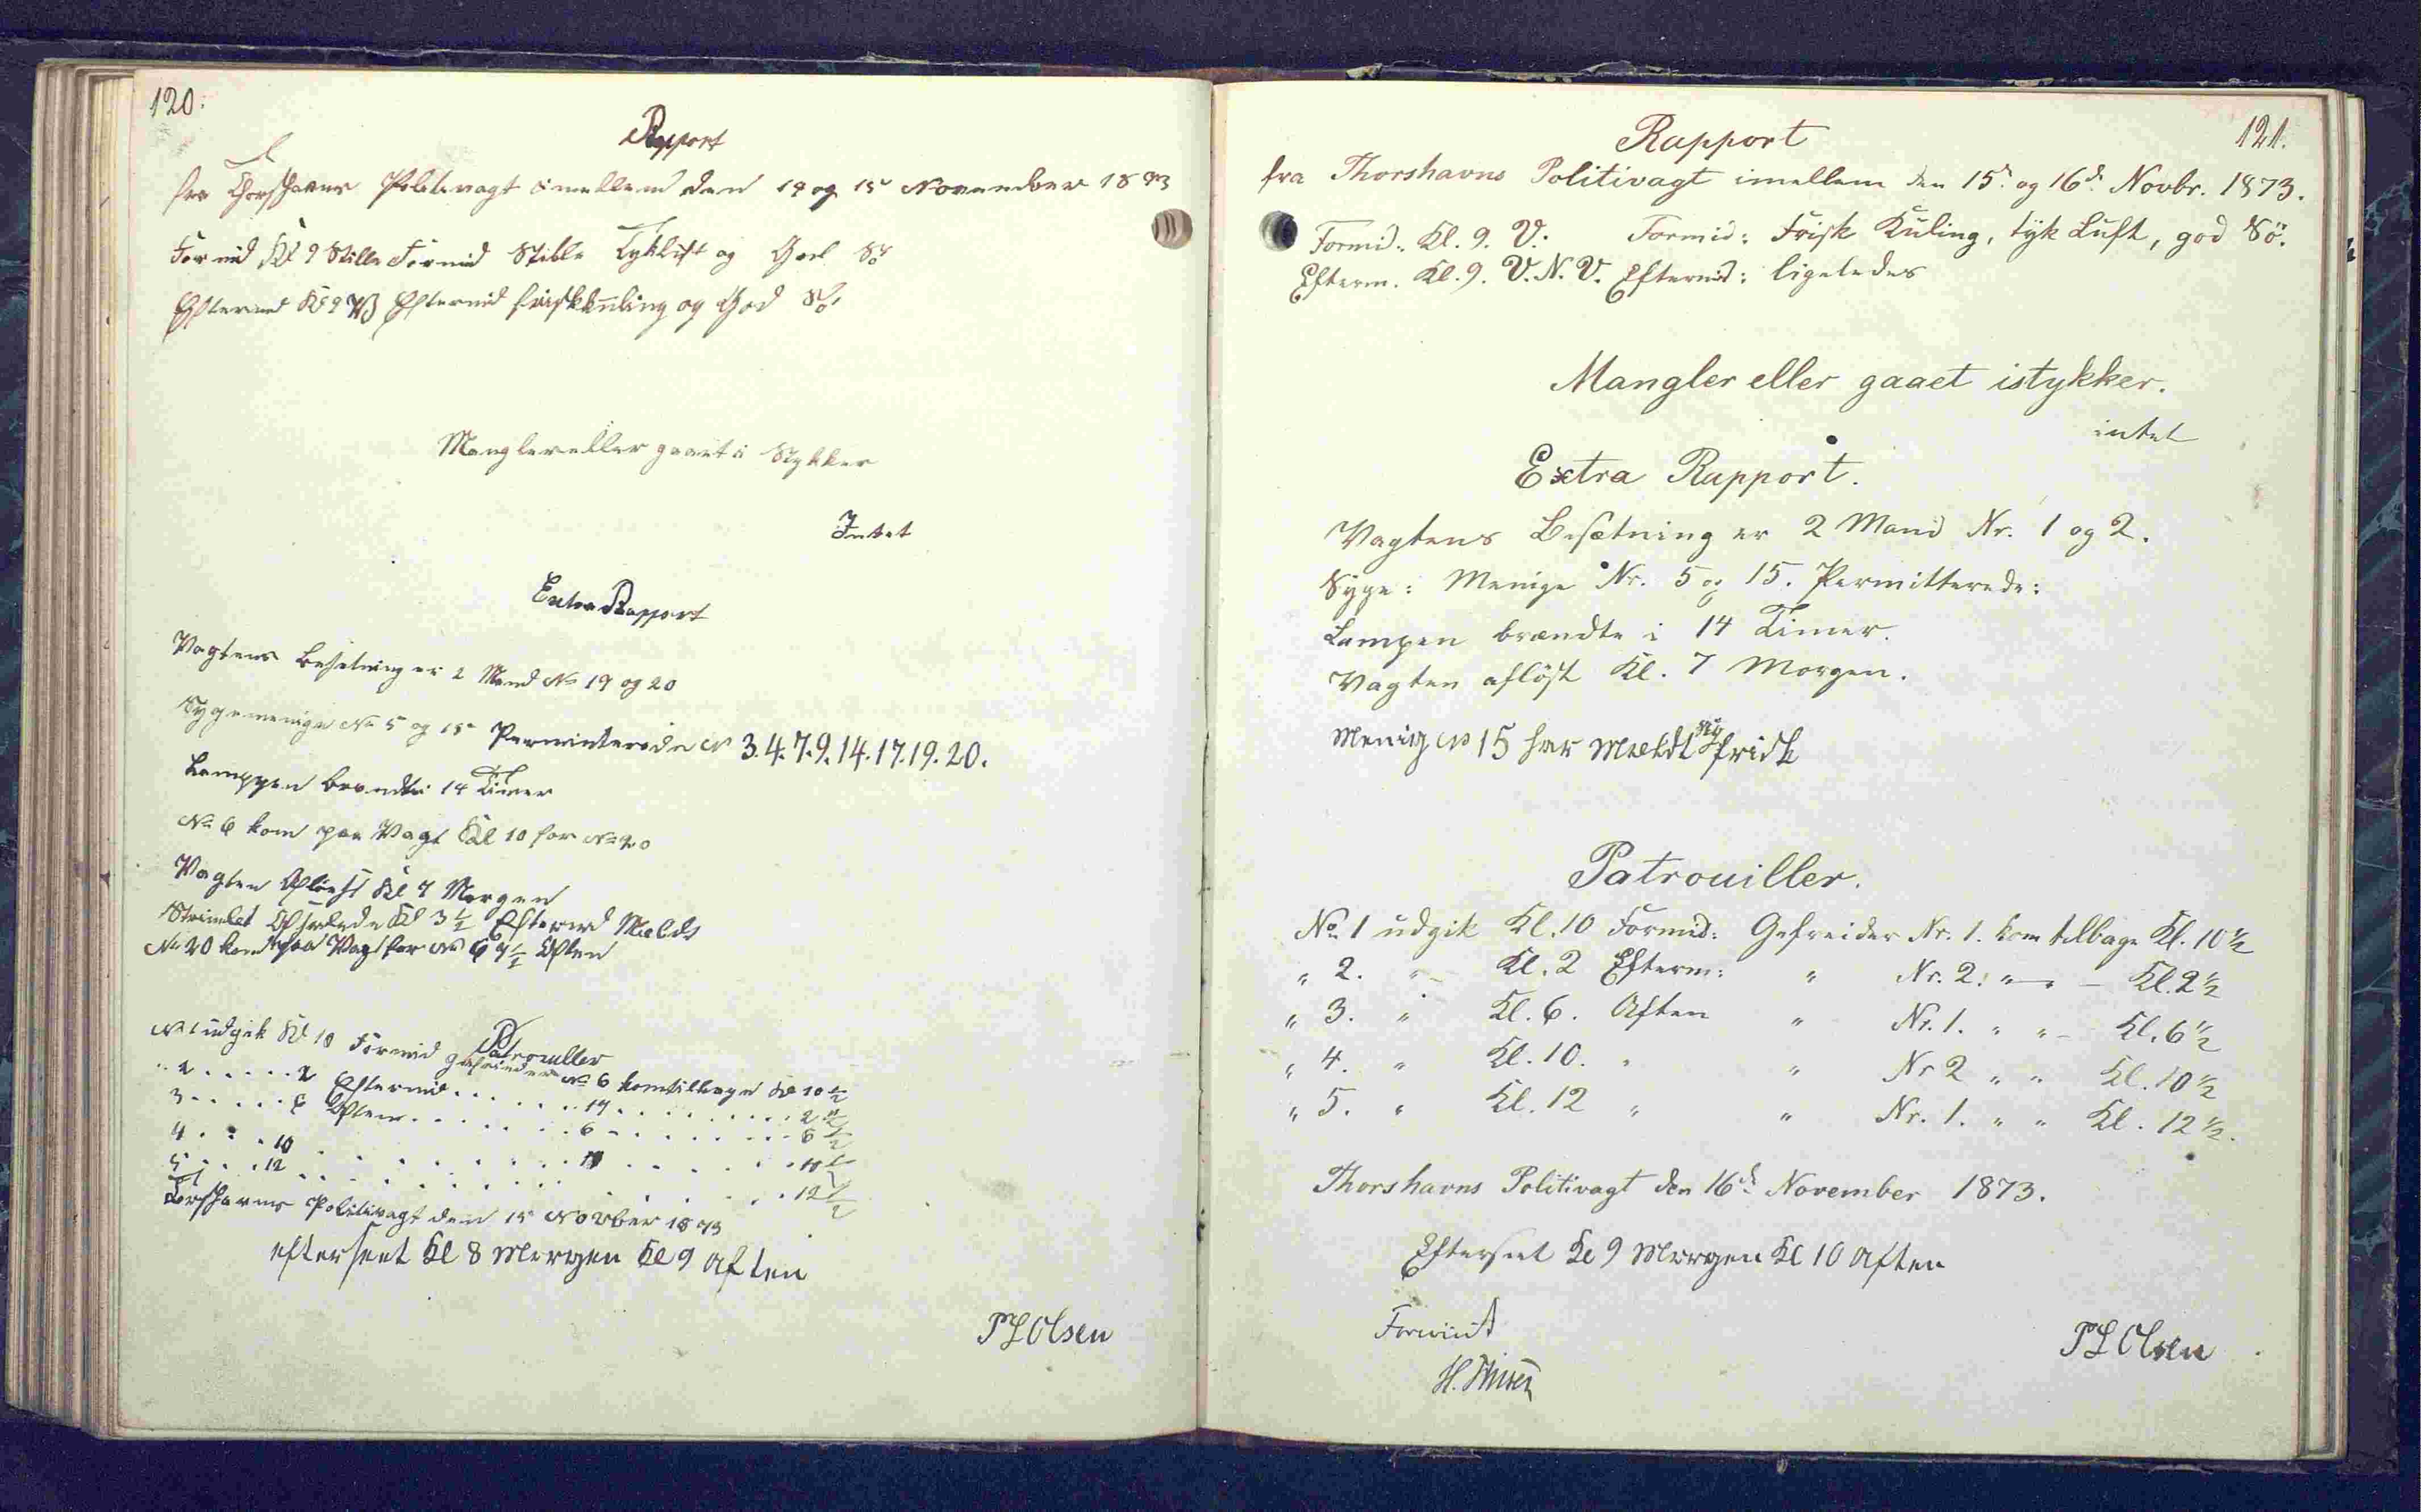 120.
Rapport
fra Thorshavns Politivagt imellem den 14 og 15 November 1873
Formid Kl 9 Stille Formid Stille Tykluft og God Sø
Eftermid Kl 9 Eftermid friskkuling og God Sø
Mangler eller gaaet i Stykker
Intet
Extra Rapport
Vagtens Besetning er 2 Mand No 19 og 20
Syge menige No 5 og 15 Permiterede No 3.4.7.9.14.17.19.20.
Lamppen brendte i 14 Timer
No 6 kom paa Vagt Kl 10 for No 20
Vagten Afløest Kl 7 Morgen
Kl 3 1/2 Eftermid
No 20 kom paa Vagt for No 6 Aften
Patrouller
No 1 udgik Kl 10 Formid gefreider No 6 kom tilbage Kl 10 1/2
" 2 . . . . . 2 Eftermid . . . . . . 19 . . . . . . . . . 2 1/2
3 . . . . . 6 Aften . . . . . . . 6 . . . . . . . . 6 1/2
4 . . . 10 . . . . . . . . . . . . 10 1/2
5 . . . 12 . . . . . . . . . . . . 12 1/2
Torshavns Politivagt den 15 Novber 1873
efterseet Kl 8 Morgen Kl 9 Aften
P L Olsen
121.
Rapport
fra Thorshavns Politivagt imellem den 15d og 16d Novbr. 1873.
Formid: Kl. 9. V. Formid: Frisk Kuling, tyk Luft, god Sö.
Efterm. Kl. 9. V.N.V. Eftermid: ligeledes
Mangler eller gaaet istykker.
intet
Extra Rapport.
Vagtens Besætning er 2 Mand Nr. 1 og 2.
Syge: Menige Nr. 5 og 15. Permitterede:
Lampen brændte i 14 Timer.
Vagten aflöst Kl. 7 Morgen.
Menig No 15 har Meldt sig frisk
Patrouiller.
No. 1 udgik Kl. 10 Formid: Gefreider Nr. 1. kom tilbage Kl. 10 1/2
" 2. " - Kl. 2 Efterm: " Nr. 2. " - " - Kl. 2 1/2
" 3. " Kl. 6. Aften " Nr. 1. " " - Kl. 6 1/2
" 4. " Kl. 10. " " Nr 2 " " Kl. 10 1/2
" 5. " Kl. 12 " " Nr. 1. " " Kl. 12 1/2.
Thorshavns Politivagt den 16d November 1873.
Efterseet Kl 9 Morgen Kl 10 Aften
P L Olsen